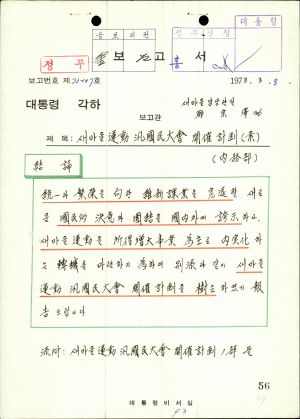 대통령
공보의전
정무수석
정무
보고서
보고번호 제
1973. 3. 8
대통령 각하
새마을담당관실
보고관
제목: 새마을運動 汎國民大會 開催計劃(案)
(内務部)
結論
統一과 繁榮을 向한 維新課業을 完遂할 새로
운 國民的 決意와 團結을 國内外에 誇示하고,
새마을運動을 所得增大事業 為主로 内実化하
는 轉機를 마련하기 為하여 別添과 같이 새마을
運動 汎國民大會 開催計劃을 樹立하였기 報
告드립니다
添附: 새마을運動 汎國民大會 開催計劃 1部 끝
56
대통령비서실